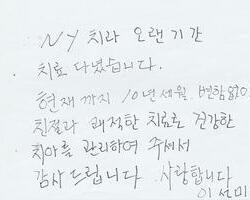 NY 치과 오랜기간
치료 다녔습니다.
현재까지 10년세월 변함없이
친절과 쾌적한 치료로 건강한
치아를 관리하여 주셔서
감사드립니다 사랑합니다
이선미